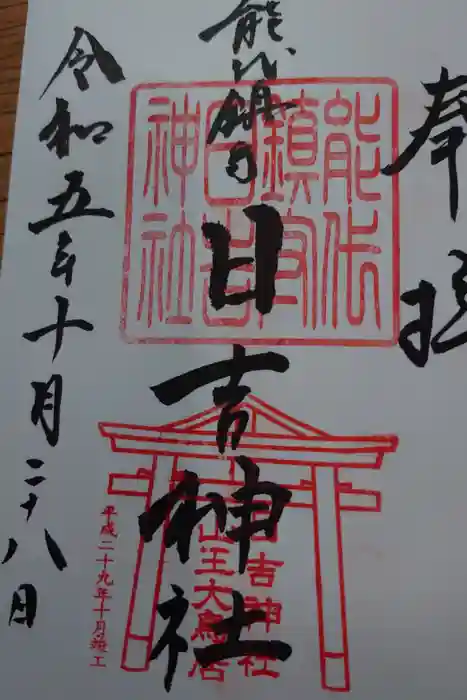 奉拝
能代鎮守
日吉神社
能代
鎮守
日吉
神社
日吉神社
山王大鳥居
平成二十九年十月竣工
令和五年十月二十八日